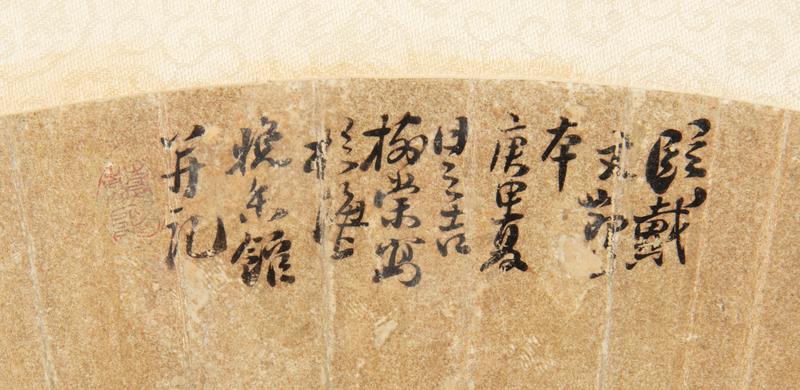 臨戴
文節
本
庚申夏
日之吉
寫
於海上
晚香館
并記